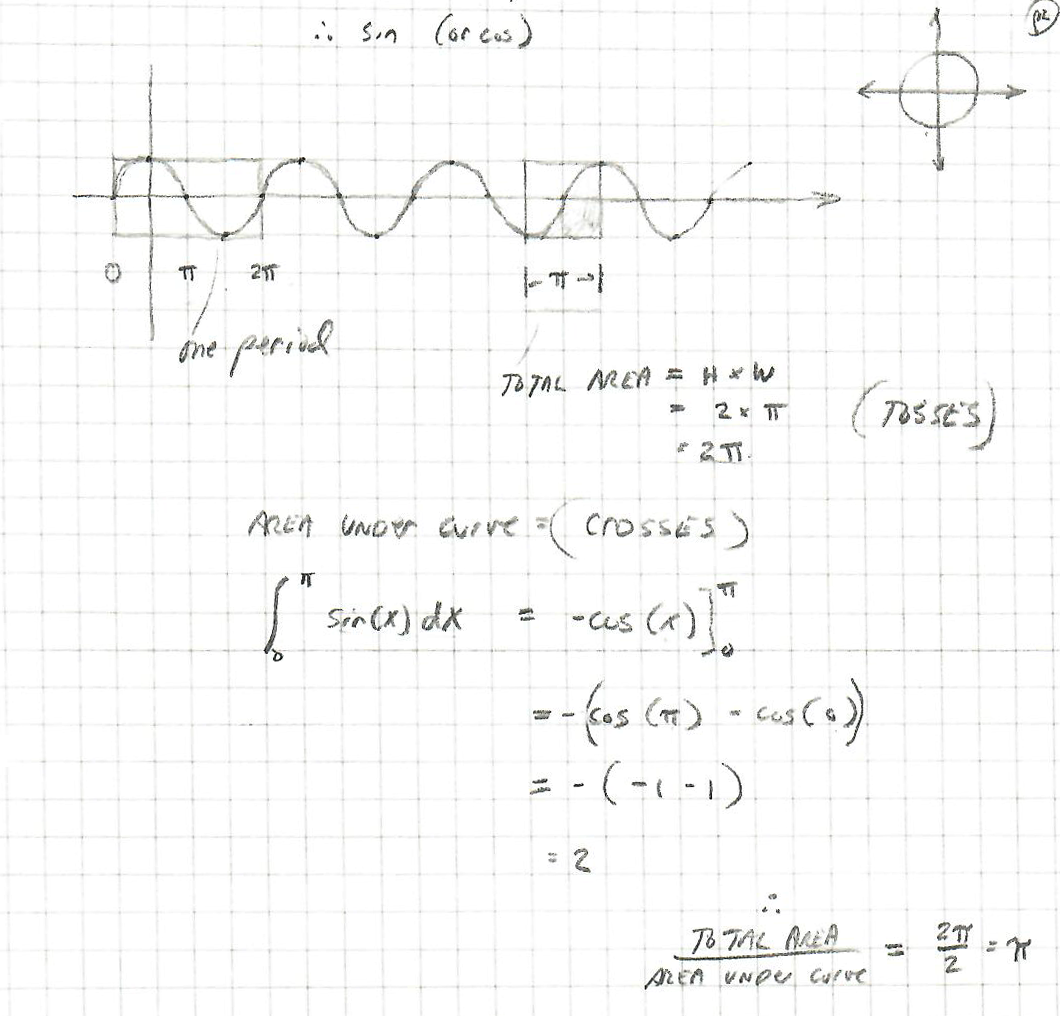 ∴ sin (or cos)
P2
0 π 2π
|- π →|
one period
TOTAL AREA = H × W
= 2 × π
= 2π.
(TOSSES)
AREA UNDER CURVE = (CROSSES)
∫₀^π sin(x) dx = -cos(x)]₀^π
= -(cos(π) - cos(0))
= -(-1 -1)
= 2
∴
TOTAL AREA / AREA UNDER CURVE = 2π/2 = π